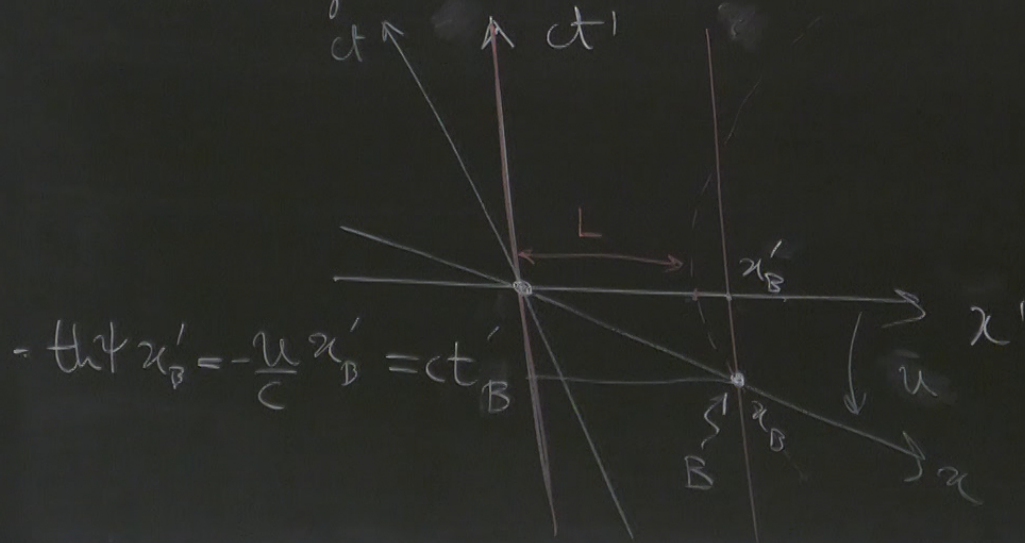 ct
ct'
L
x'_B
x'
- thψ x'_B = - u/c x'_B = ct'_B
u
x_B
B
x